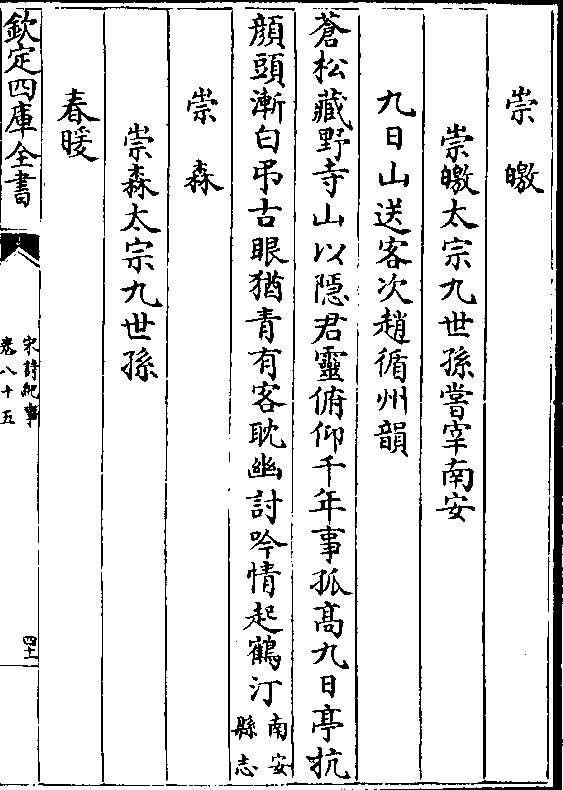 崇皦
崇皦太宗九世孫嘗宰南安
九日山送客次趙循州韻
蒼松藏野寺山以隱君靈俯仰千年事孤髙九日亭抗
顔頭漸白弔古眼猶青有客耽幽討吟情起鶴汀南安縣志
崇森
崇森太宗九世孫
春暖
欽定四庫全書
宋詩紀事
卷八十五
四十一